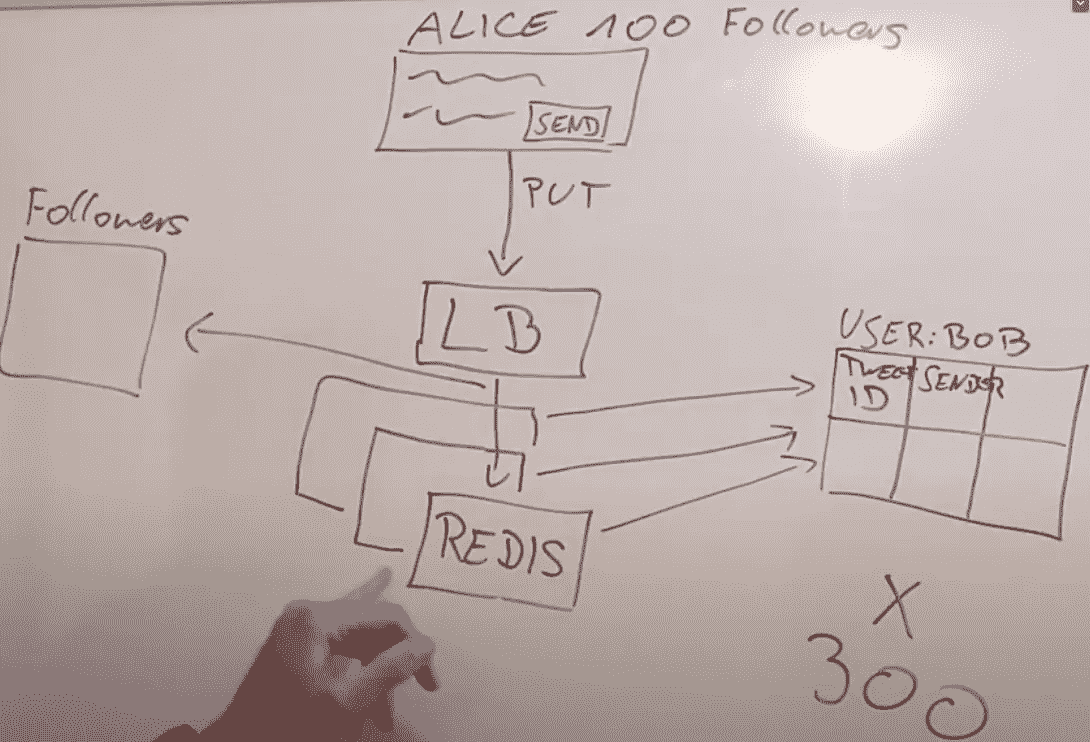 ALICE 100 Followers
SEND
PUT
Followers
LB
USER:BOB
TWEET SENDER
ID
REDIS
X
300